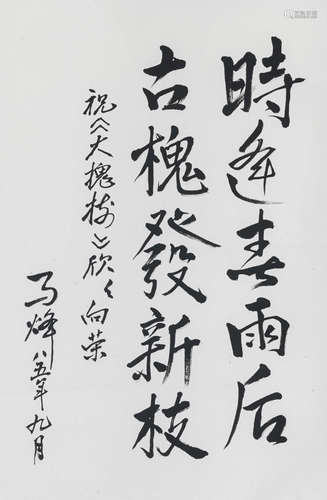 時逢春雨后
古槐發新枝
祝《大槐树》欣々向荣
马烽 八五年九月